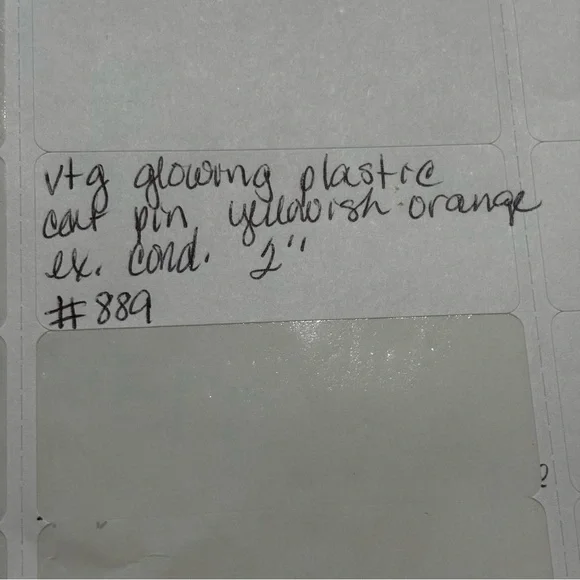 vtg glowing plastic
cat pin yellowish-orange
ex. cond. 2"
#889